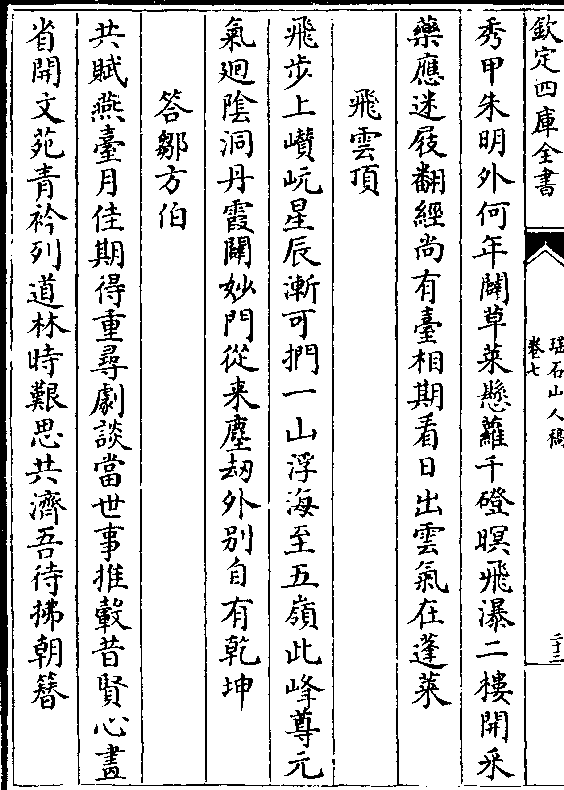 欽定四庫全書
瑶石山人稿
卷七
二十三
秀甲朱明外何年闢草萊懸蘿千磴暝飛瀑二樓開采
藥應迷屐翻經尚有臺相期看日出雲氣在蓬萊
飛雲頂
飛步上巑岏星辰漸可捫一山浮海至五嶺此峰尊元
氣廻陰洞丹霞闢妙門從来塵刼外别自有乾坤
答鄒方伯
共賦燕臺月佳期得重尋劇談當世事推轂昔賢心畫
省開文苑青衿列道林時艱思共濟吾待拂朝簪